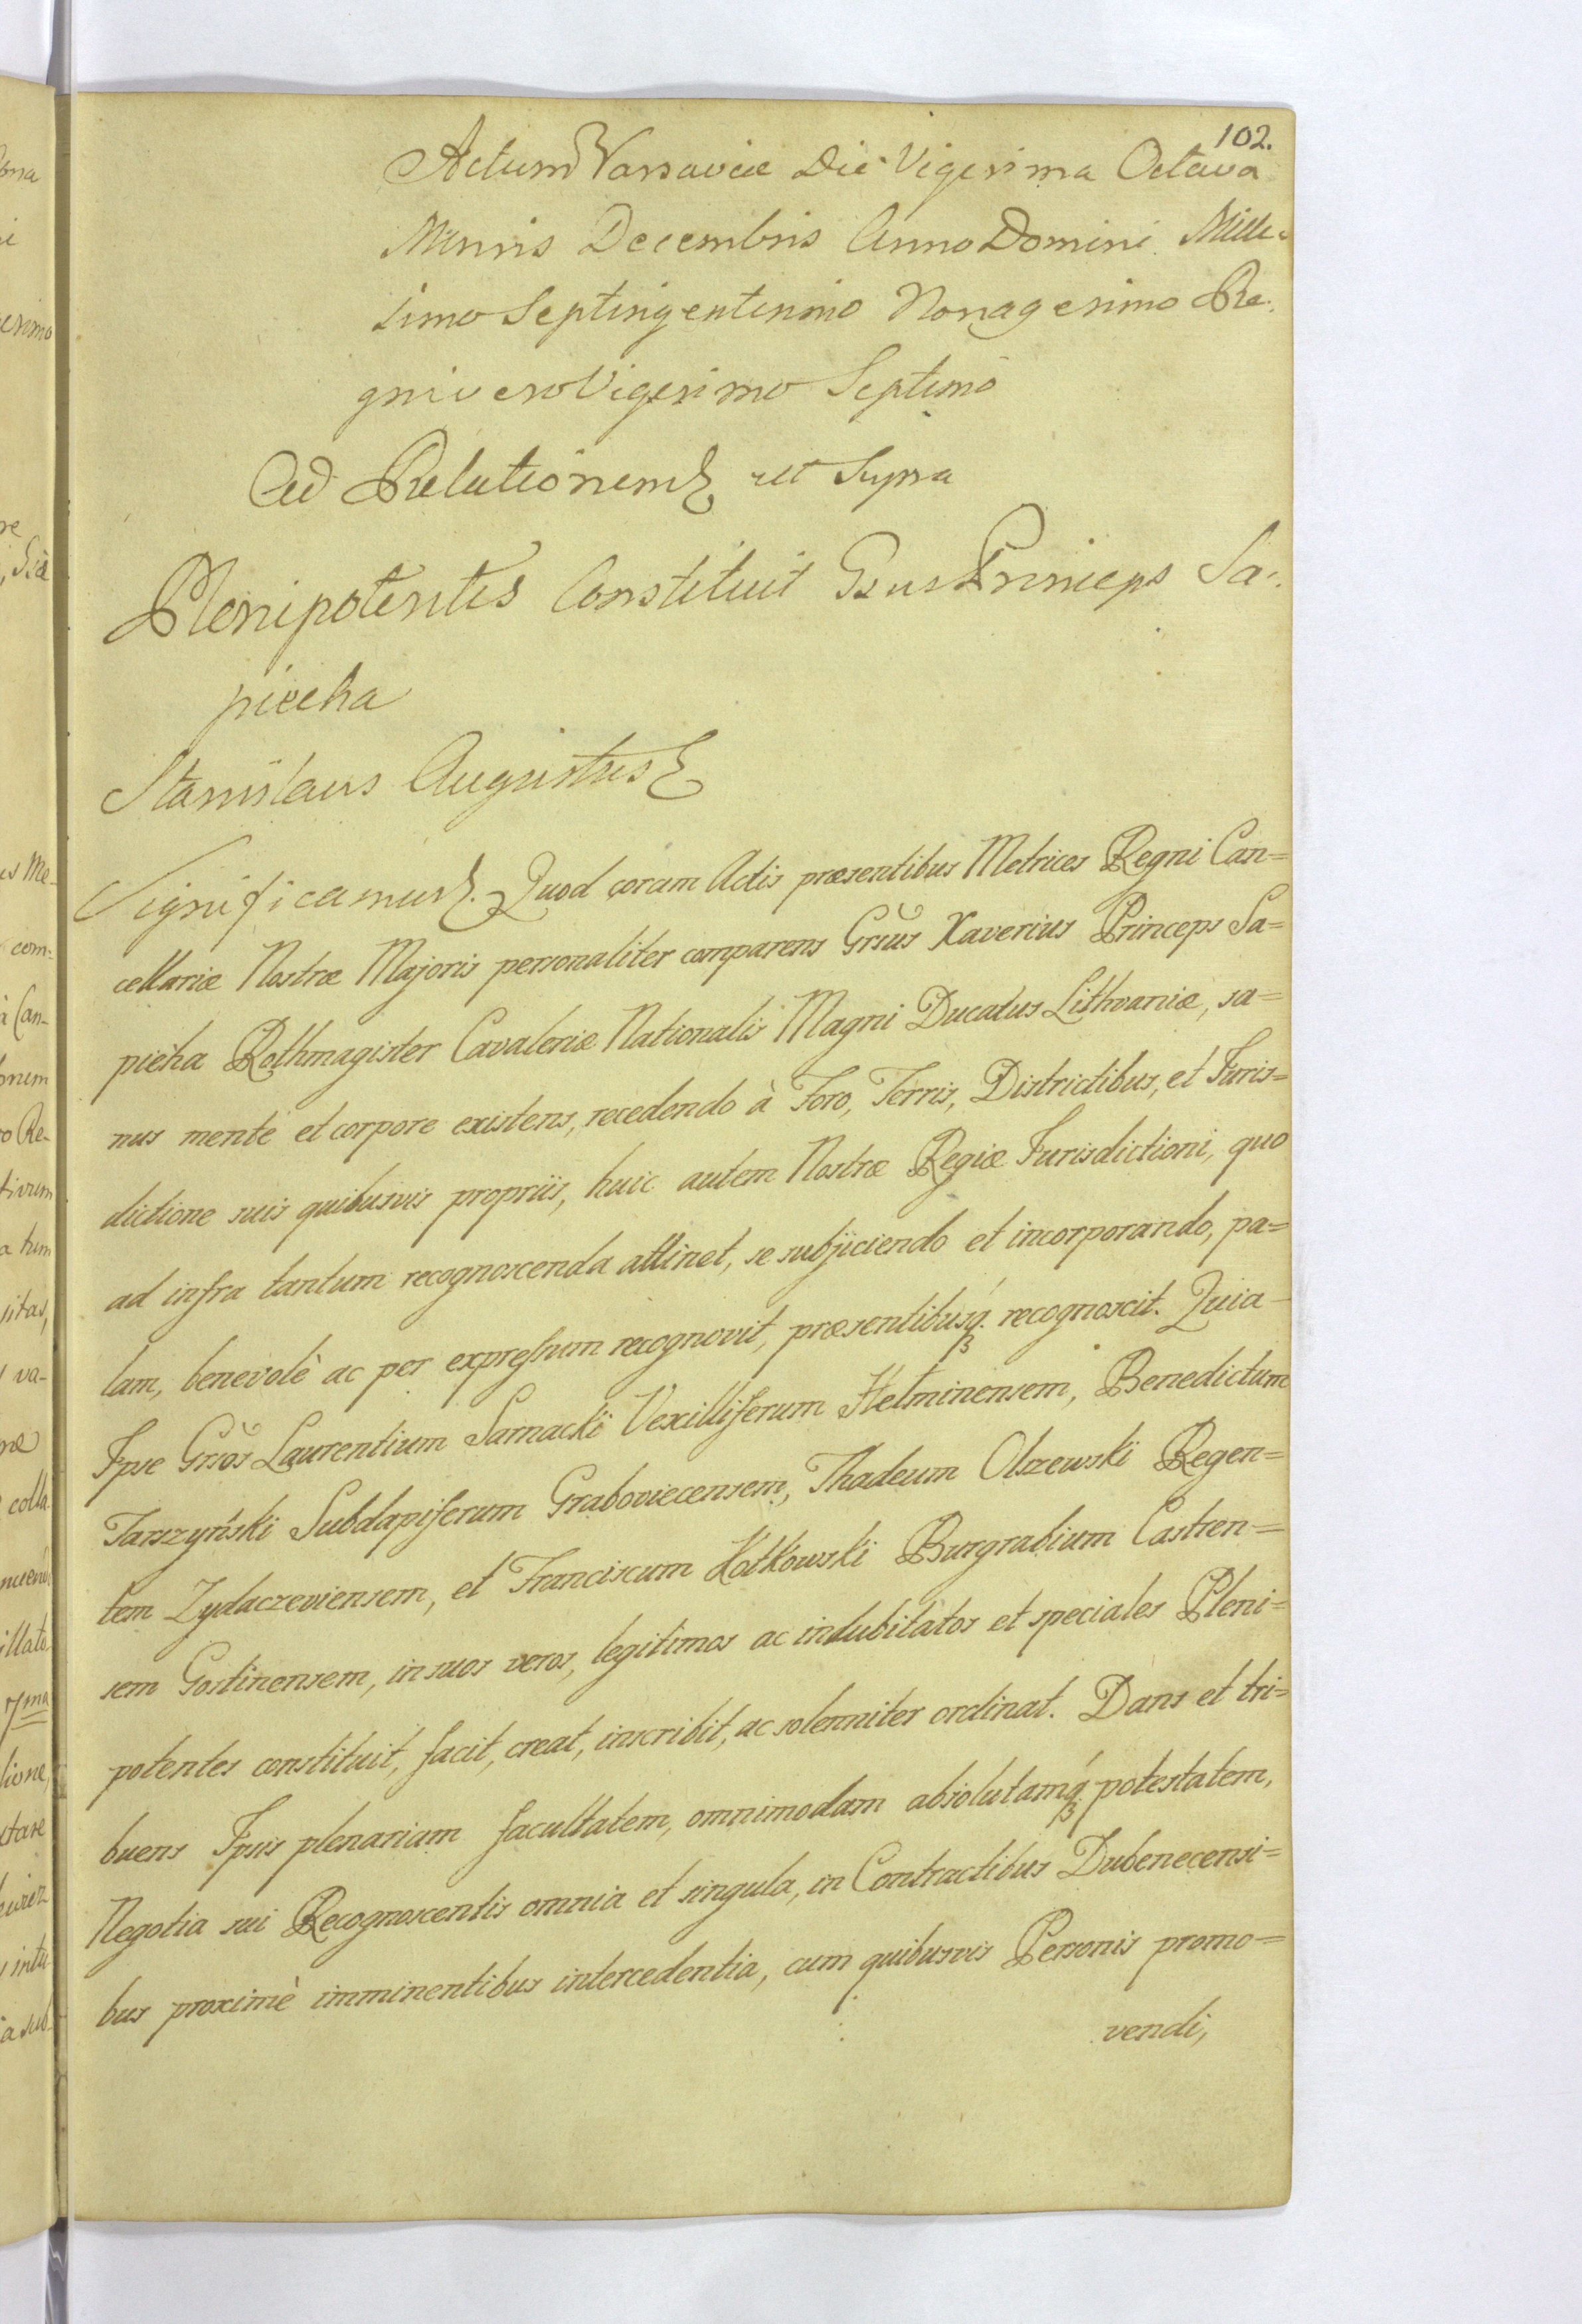 102.
Actum Varsaviæ Die Vigesima Octava
Mensis Decembris Anno Domini Mille-
simo Septingentesimo Nonagesimo Re-
gni vero Vigesimo Septimo
Ad Relationem ut Supra
Plenipotentes Constituit Gsus Princeps Sa-
pieha
Stanislaus Augustus
Significamus. Quod coram Actis præsentibus Metrices Regni Can=
cellariæ Nostræ Majoris personaliter comparens Grsus Xaverius Princeps Sa=
pieha Rothmagister Cavaleriæ Nationalis Magni Ducatus Lithvaniæ, sa=
nus mente et corpore existens, recedendo à Foro, Terris, Districtibus, et Juris=
dictione suis quibusvis propriis, huic autem Nostræ Regiæ Jurisdictioni, quo
ad infra tantum recognoscenda attinet, se subjiciendo et incorporando, pa=
lam, benevolè ac per expressum recognovit, præsentibusq. recognoscit. Quia
Ipse Grsos Laurentium Sarnacki Vexilliferum Helminensem, Benedictum
Tarszyński Subdapiferum Graboviecensem, Thadeum Olszewski Regen=
tem Zydaczeviensem, et Franciscum Kotkowski Burgrabium Castren=
sem Gostinensem, in suos veros, legitimos ac indubitatos et speciales Pleni=
potentes constituit, facit, creat, inscribit, ac solenniter ordinat. Dans et tri=
buens Ipsis plenariam facultatem, omnimodam absolutamq. potestatem,
Negotia sui Recognoscentis omnia et singula, in Contractibus Dubenecensi=
bus proximè imminentibus intercedentia, cum quibusvis Personis promo=
vendi,